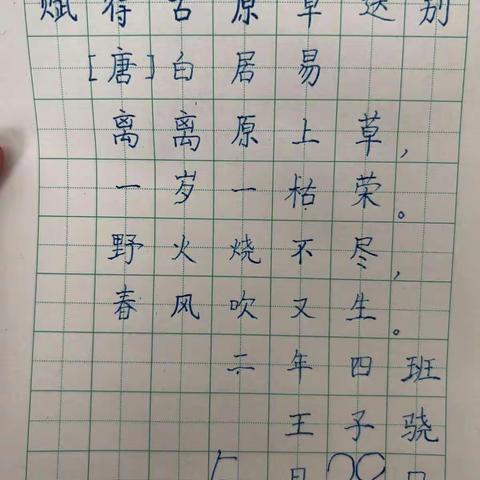 赋得古原草送别
[唐]白居易
离离原上草，
一岁一枯荣。
野火烧不尽，
春风吹又生。
二年四班
王子骁
5月29日